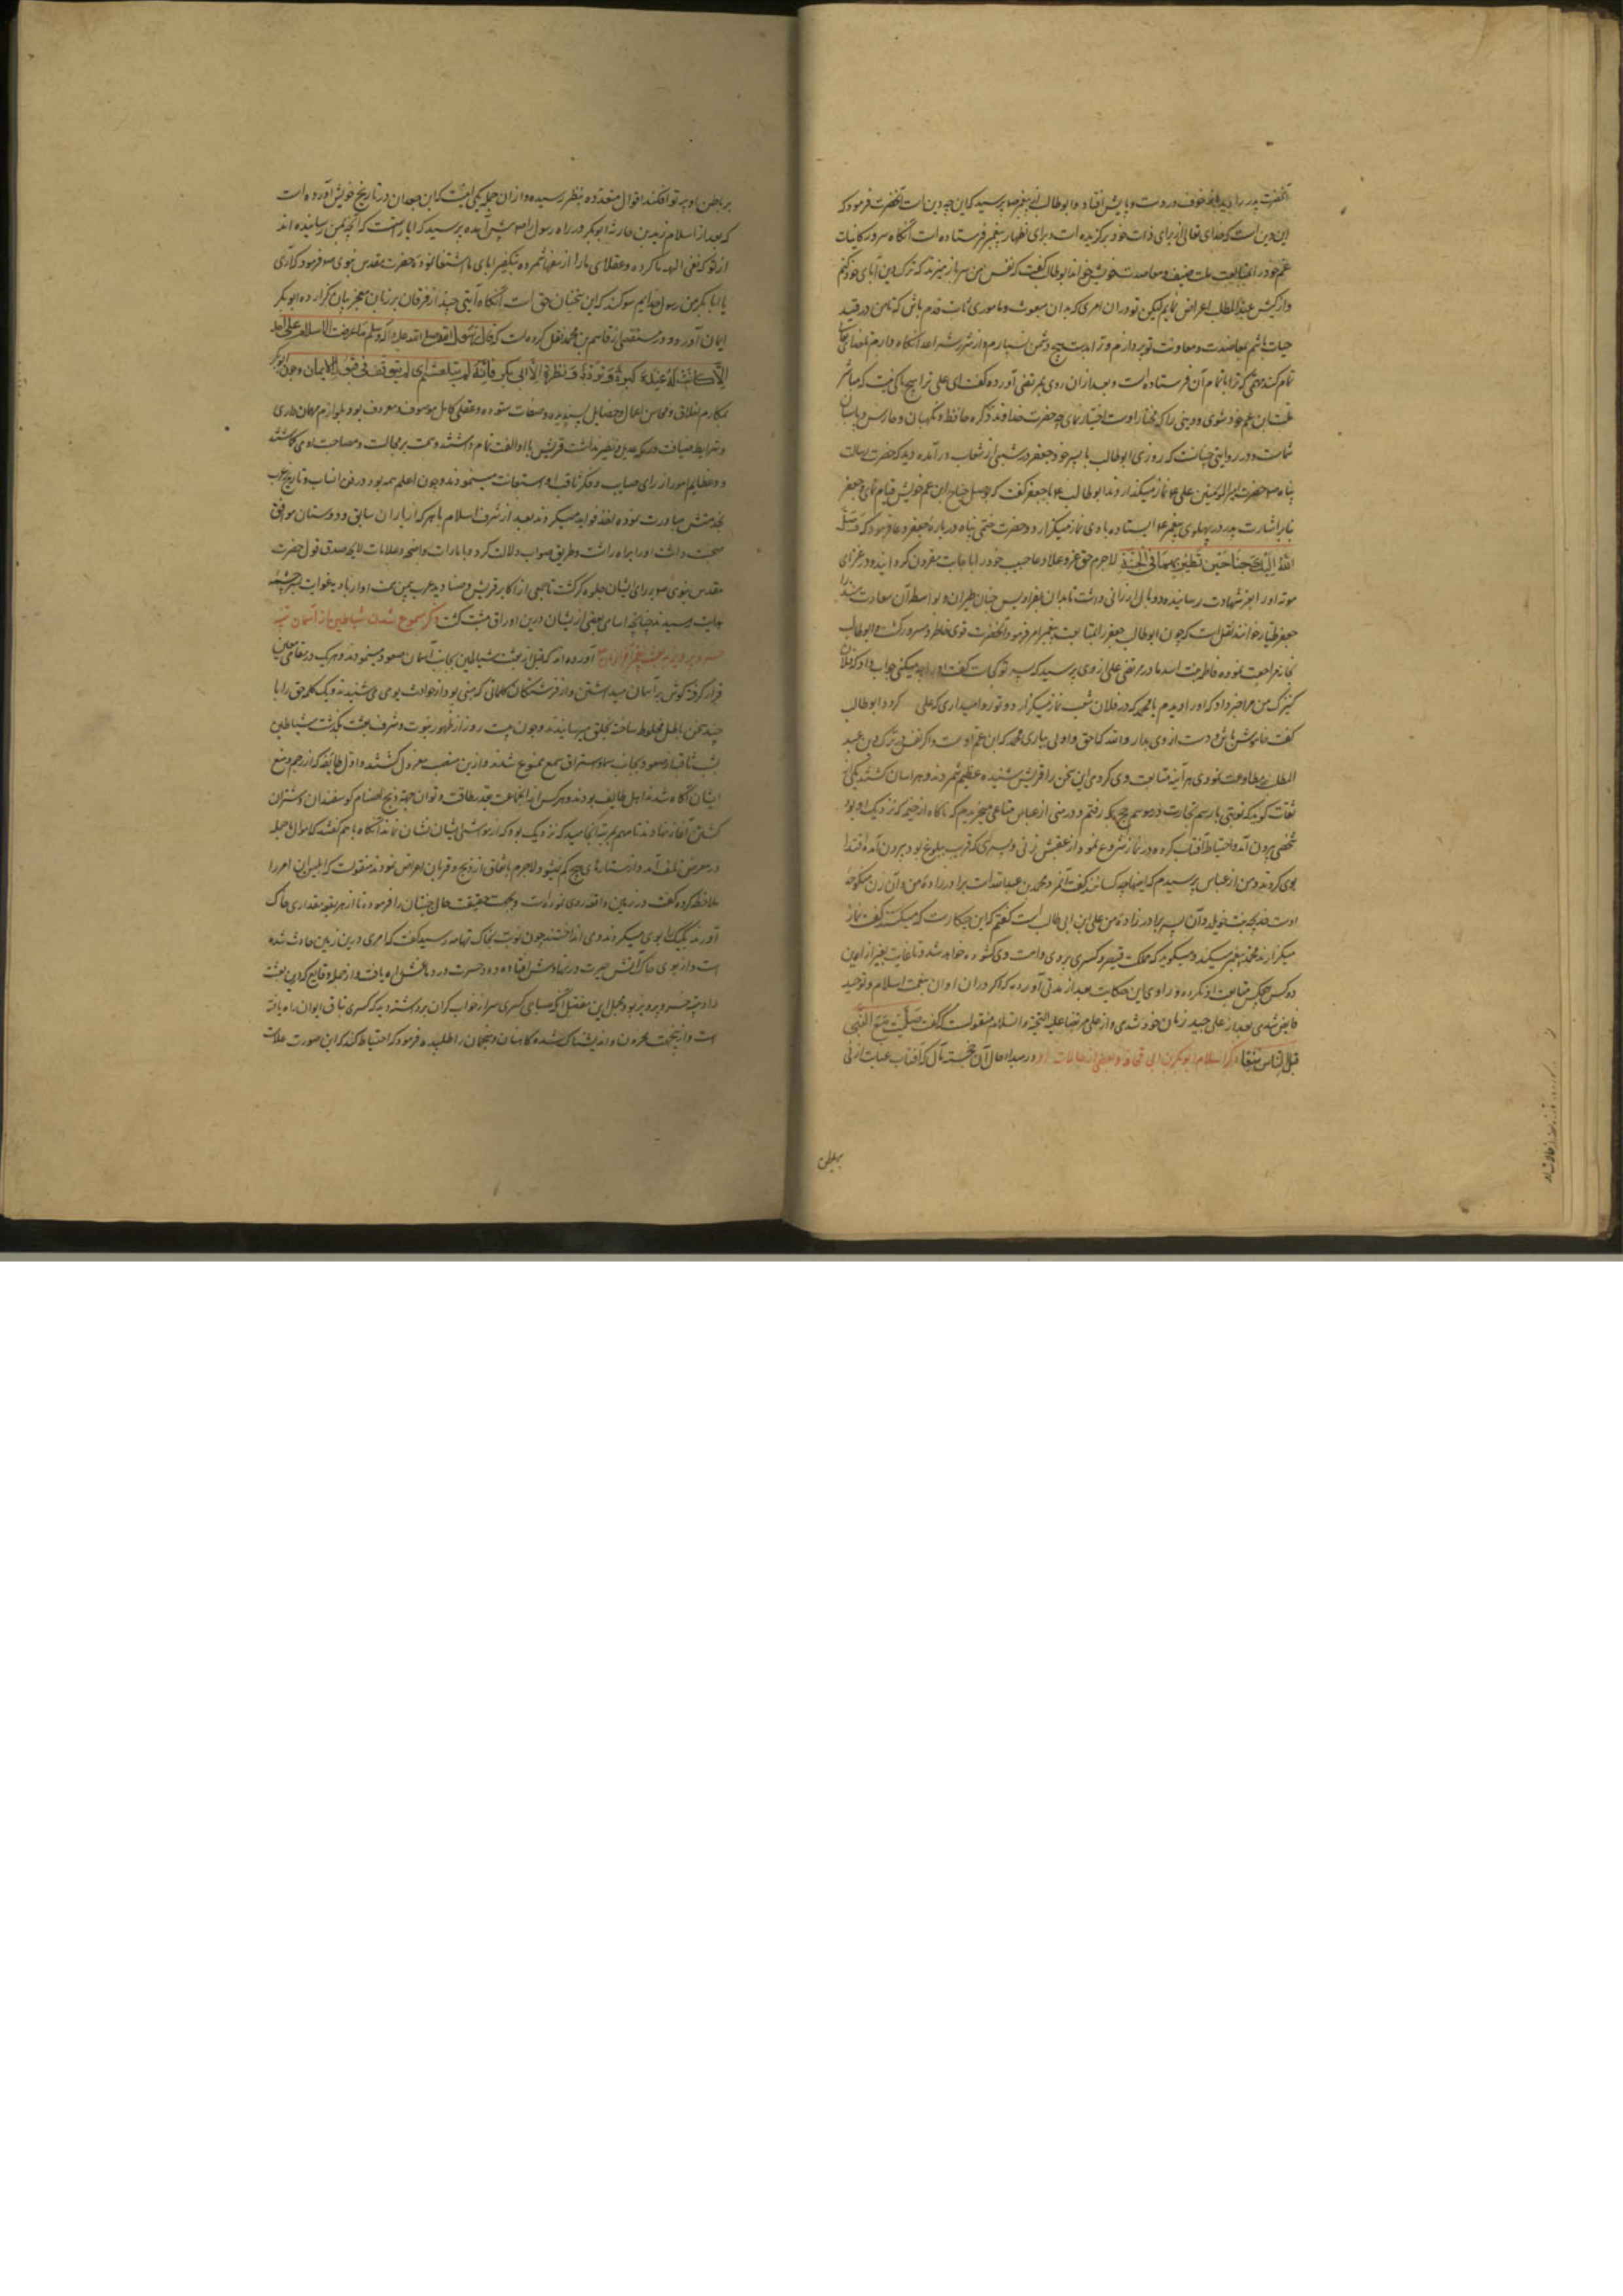 آنحضرت پدر را دید خوف و ابوطالب از پیغمبر پرسید که این چه دین است آنحضرت فرمود که
این دین است که خدای تعالی از برای ذات خود برگزیده است و برای اظهار پیغمبر فرستاده است آنگاه سرور کاینات
عم خود را بمتابعت ملت حنیف و معاضدت خویش خواند ابوطالب گفت که نفس من سر باز میزند که ترک دین آبای خود کنم
و از کیش عبدالمطلب اعراض نمایم لیکن تو در آن امری که بدان مبعوث و ماموری ثابت قدم باش که تا من در قید
حیات باشم بمعاضدت و معاونت تو پردازم و ترا بدست هیچ دشمن نسپارم و از شر اعدا نگاه دارم تا خدای تعالی
تمام کند مهمی که ترا باتمام آن فرستاده است و بعد از آن روی بمرتضی آورده گفت ای علی ترا هیچ باکی نیست که
ابن عم خود شوی و دینی را که مختار اوست اختیار نمای چه حضرت خداوند ذکره حافظ و نگهبان و حارس و پاسبان
شماست و در روایتی چنانست که روزی ابوطالب با پسر خود جعفر در شعبی از شعاب درآمده دید که حضرت رسالت
پناه و حضرت امیر المومنین علی نماز میگذارند ابوطالب با جعفر گفت که صل جناح ابن عم خویش قیام نمای جعفر
بنابر اشارت پدر در پهلوی پیغمبر ایستاده با وی نماز میگزارد و حضرت ختمی پناه درباره جعفر دعا فرمود که وصل
الله الیک جناحین تطیر بهما فی الجنة لاجرم حق عز و علا دعا حبیب خود را باجابت مقرون گردانید و در غزای
موته او را بعز شهادت رسانیده دو بال ارزانی داشت تا بدان بفرادیس جنان طیران و بواسطه آن سعادت
جعفر طیار خوانند نقل است که چون ابوطالب جعفر را بمتابعت پیغمبر امر فرمود آنحضرت قوی خاطر و مسرور گشت و ابوطالب
بخانه مراجعت نموده فاطمه بنت اسد مادر مرتضی علی از وی پرسید که پسر تو کجاست گفت او را چه میکنی جواب داد که فلان
کنیزک من مرا خبر داد که او را دیدم با محمد که در فلان شعب نماز میگزارد و تو روا میداری که علی گردد ابوطالب
گفت خاموش باش و دست از وی بدار والله که احق و اولی بیاری محمد که ابن عم اوست و اگر نفس من در ترک دین عبد
المطلب مطاوعت نمودی هر آینه متابعت وی کردمی این سخن را قریش شنیده عظیم شمردند و هراسان گشتند یکی از
ثقات گوید که نوبتی با رسم تجارت در موسم حج بمکه رفتم و در منی از عباس متاعی میخریدم که ناگاه از خیمه که نزدیک او بود
شخصی بیرون آمد و احتیاط آفتاب کرده در نماز شروع نمود و از عقبش زنی و پسری که قریب ببلوغ بود بیرون آمده اقتدا
بوی کردند من از عباس پرسیدم که اینها چه کسانند گفت آنمرد محمد بن عبدالله است برادرزاده من و آن زن منکوحه
اوست خدیجه بنت خویلد و آن پسر برادرزاده من علی ابن ابی طالب است گفتم که این چکار است که میکنند گفت نماز
میگزارند محمد پیغمبر میکند و میگوید که مملکت قیصر و کسری بر وی و امت وی گشوده خواهد شد و تا غایت بغیر از این
دو کس هیچکس متابعت او نکرده و راوی این حکایت بعد از مدتی آورده که اگر در آن اوان بنعمت اسلام و توحید
فایض شدی بعد از علی وحید زمان خود شدی و از علی مرتضا علیه التحیة والسلام منقولست که گفت صلیت مع النبی
قبل الناس سبعا ذکر اسلام ابوبکر بن ابی قحافه و بعضی از حالات او در مبداء حال آن خجسته مآل که آفتاب عنایت ازلی
بر باطن
بر باطن او پرتو افکند اقوال متعدده بنظر رسیده و از آن جمله یکی اینست که ابن جعدان در تاریخ خویش آورده است
که بعد از اسلام زید بن حارثه ابوبکر در راه رسول را پیش آمده پرسید که ایا راست است که آنچه بمن رسانیده اند
از تو که نفی الهه ما کرده و عقلای ما را از سفها شمرده بتکفیر ابای ما اشتغال نموده حضرت مقدس نبوی فرمود که آری
یا ابابکر من رسول خدایم سوگند که این سخنان حق است آنگاه آیتی چند از فرقان بر زبان معجز بیان گزارده ابوبکر
ایمان آورد و در مستقصی از قاسم بن محمد نقل کرده است که قال رسول الله صلی الله علیه و آله وسلم ما عرضت الاسلام علی احد
الا کانت له عنده کبوة و تردد و نظرة الا ابی بکر فانه لم یتلعثم ای لم یتوقف فی قبول الایمان و چون ابوبکر
بمکارم اخلاق و محاسن اعمال و خصایل پسندیده و صفات ستوده و عقلی کامل موصوف و معروف بود و بلوازم مهمان داری
و شرایط ضیافت عدیل و نظیر نداشت قریش با او الفت تمام داشتند و همت بر مجالست و مصاحبت او می گماشتند
و در عظایم امور از رای صایب و فکر ثاقب او استعانت مینمودند و چون اعلم همه بود در فن انساب و تاریخ عرب
بخدمتش مبادرت نموده اخذ فواید میکردند بعد از شرف اسلام با هر که از یاران سابق و دوستان موافق
صحبت داشت او را براه راست و طریق صواب دلالت کرد و بامارات واضحه و علامات لایحه صدق قول حضرت
مقدس نبوی برای ایشان جلوه گر گشت تا جمعی از اکابر قریش و صنادید عرب بیمن همت او از بادیه غوایت بسرچشمه
هدایت رسیدند چنانچه اسامی بعضی از یشان درین اوراق مثبت گشت ذکر ممنوع شدن شیاطین از آسمان
خسرو پرویز آورده اند که قبل از بعثت شیاطین بجانب آسمان صعود مینمودند و هر یک در مقامی معین
قرار گرفته گوش بر آسمان میداشتند و از فرشتگان کلماتی که مبنی بود از حوادث یومی می شنیدند و یک کلمه حق را با
چند سخن باطل مخلوط ساخته بخلق میرسانیدند و چون بیست روز از ظهور نبوت و شرف بعثت بگذشت شیاطین
بشهاب ثاقب از صعود بجانب سما و استراق سمع ممنوع شدند و ازین منصب معزول گشتند و اول طایفه که از رجم و منع
ایشان آگاه شدند اهل طایف بودند و هر کس از آن جماعت بقدر طاقت و توان بجهت ذبح اصنام گوسفندان و شتران
کشتن آغاز نهادند تا مهم بمرتبه انجامید که نزدیک بود که از مواشی ایشان نشان نماند آنگاه با هم گفتند که اموال ما جمله
در معرض تلف آمد و از ستارهای هیچ کم نمیشود لاجرم باتفاق از ذبح و قربان اعراض نمودند منقولست که ابلیس این امر را
ملاحظه کرده گفت در زمین واقعه روی نموده است و بجهت حقیقت حال جنیان را فرموده تا از هر بقعه مقداری خاک
آوردند یک یک را بوی میکرد و می انداخت چون نوبت بخاک تهامه رسید گفت که امری درین زمین حادث شده
است و از بوی خاک آتش حیرت در نهادش افتاده دود حسرت در دماغش راه یافت و از جمله وقایع که در حین بعثت
داد خسرو پرویز بود مجمل این مفصل آنکه صباحی کسری سر از خواب گران برداشته دید که کسری بطاق ایوان راه یافته
است و ازین جهت محزون و اندیشناک شده کاهنان و منجمان را طلبیده فرمود که احتیاط کنند که این صورت علامت